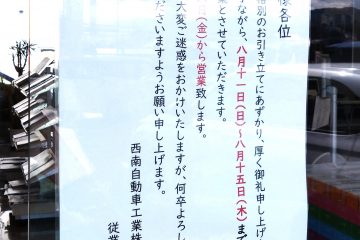 様各位
格別のお引き立てにあずかり、厚く御礼申し上げ
ながら、八月十一日(日)～八月十五日(木)まで
業とさせていただきます。
日(金)から営業致します。
大変ご迷惑をおかけいたしますが、何卒よろし
ださいますようお願い申し上げます。
西南自動車工業株
従業